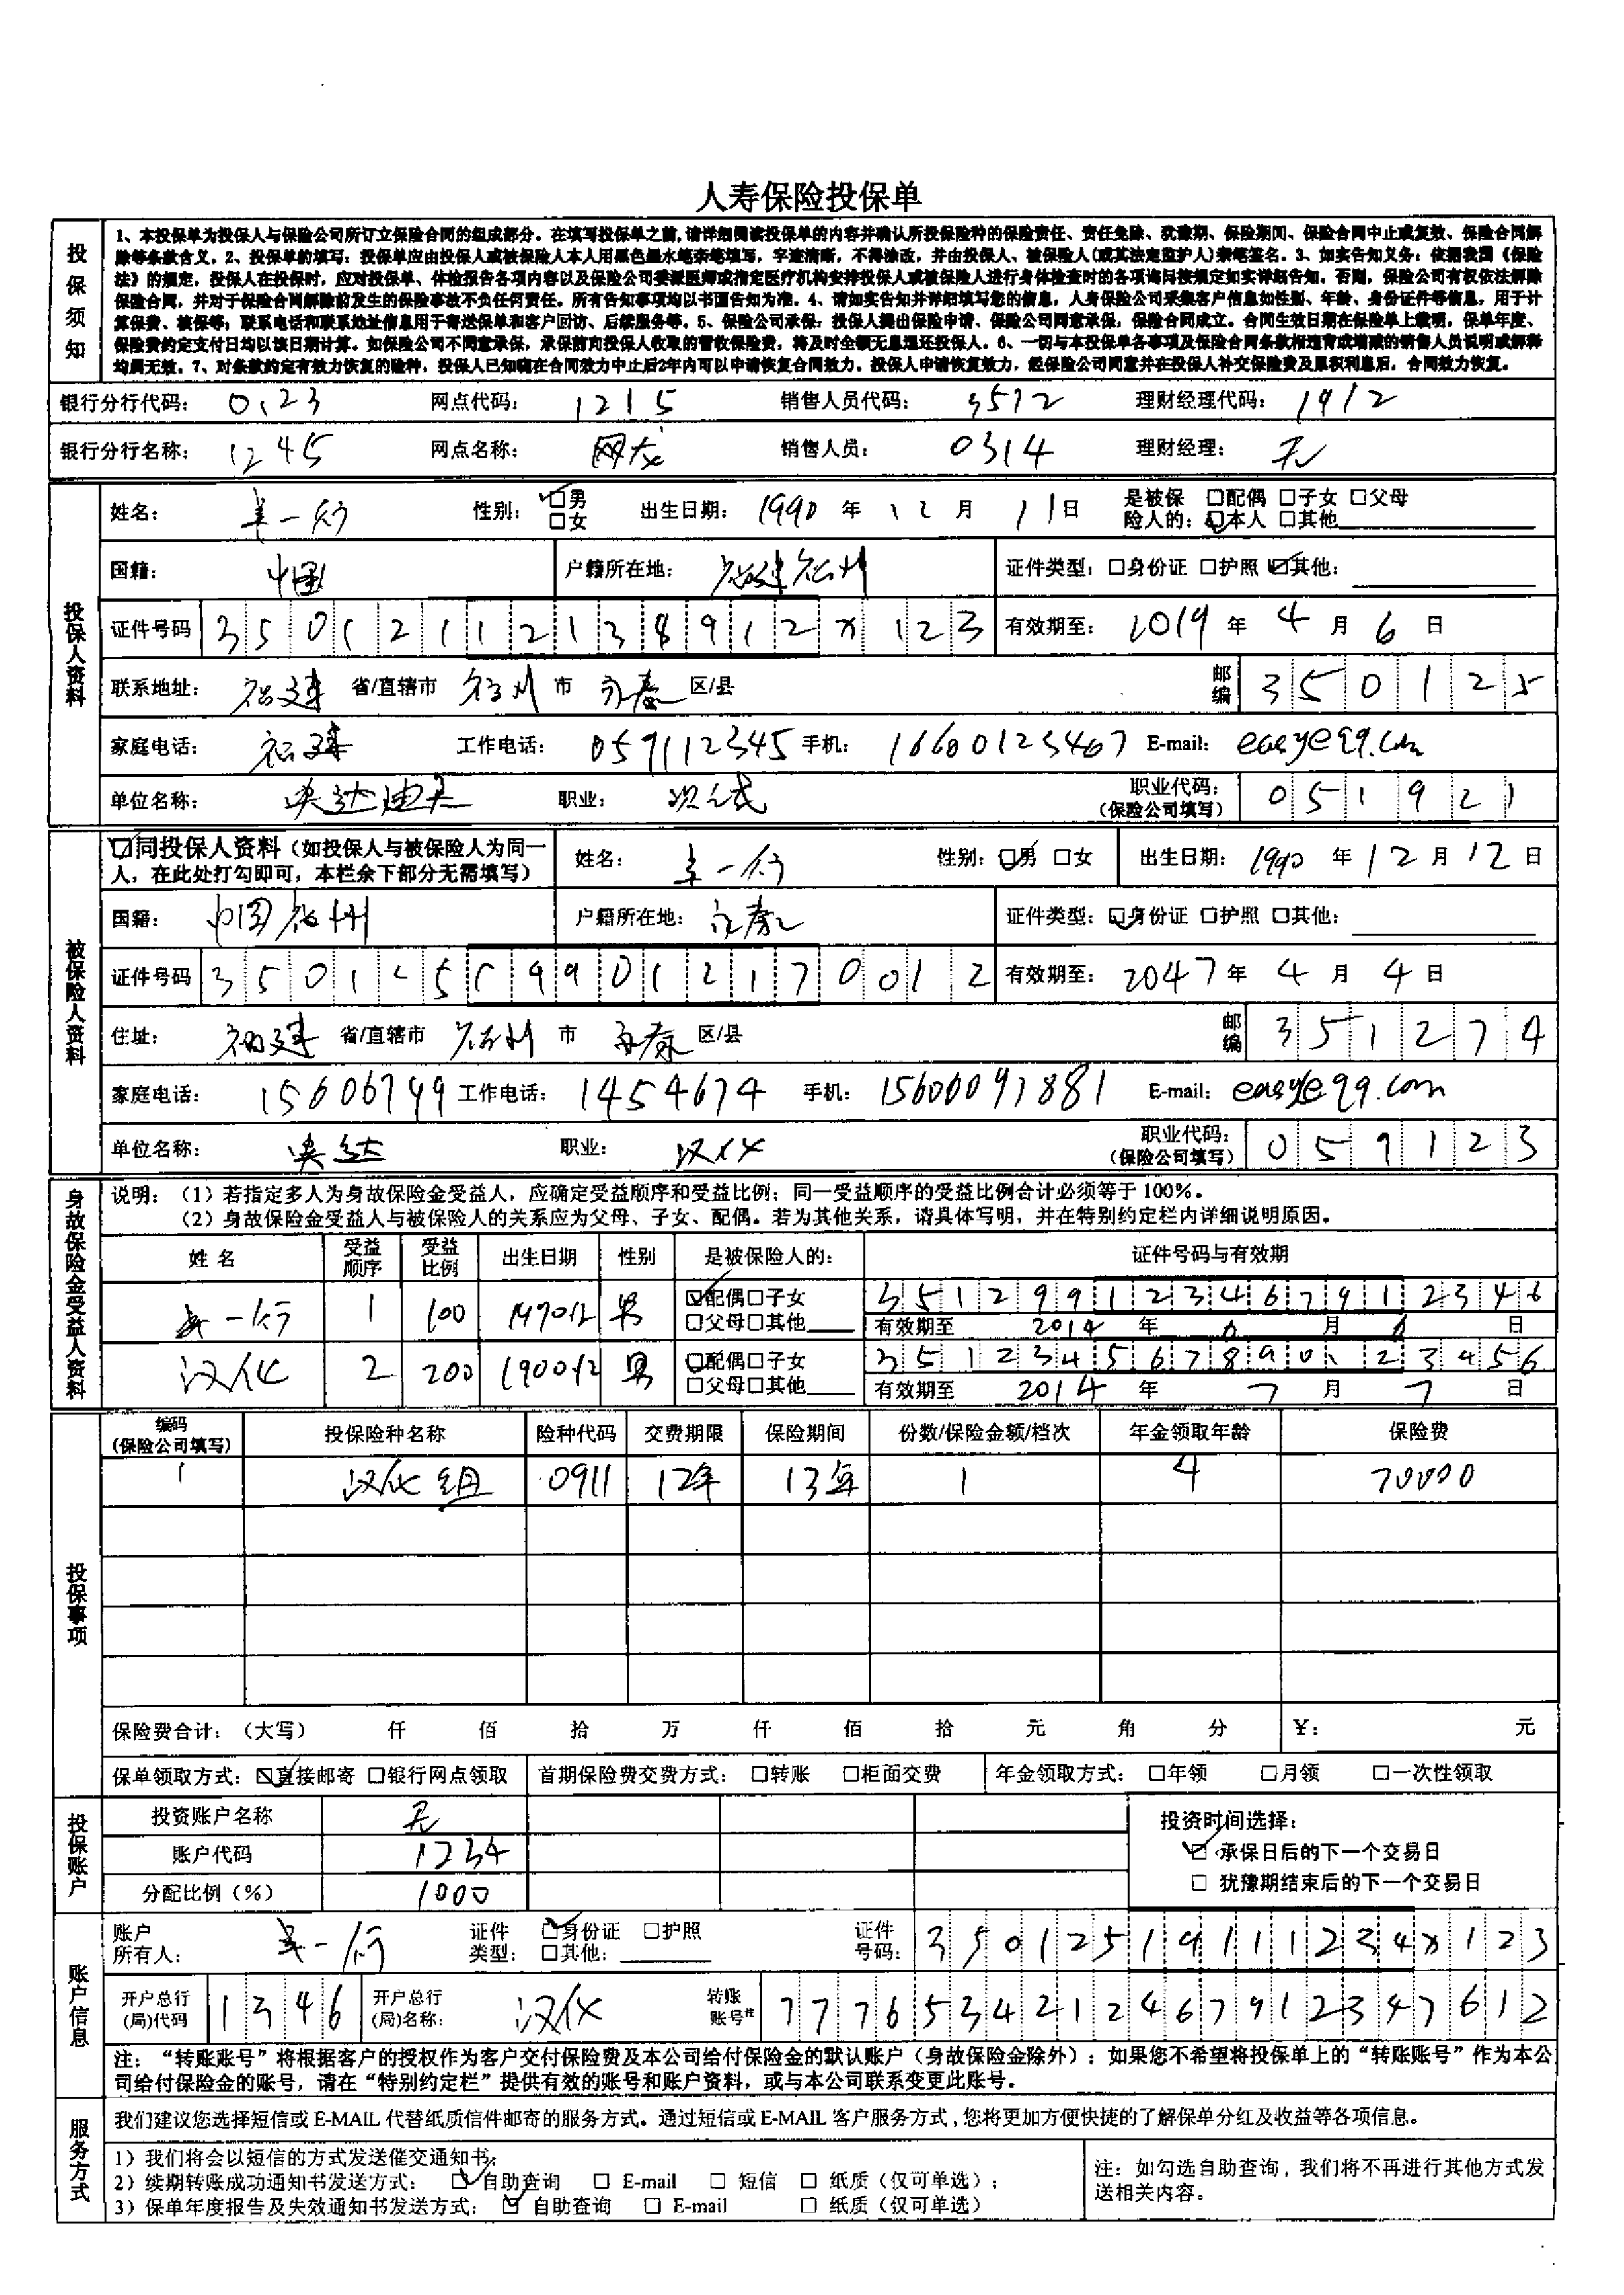 人寿保险投保单
投保须知
1、本投保单为投保人与保险公司所订立保险合同的组成部分。在填写投保单之前,请详细阅读投保单的内容并确认所投保险种的保险责任、责任免除、犹豫期、保险期间、保险合同中止或复效、保险合同解
除等条款含义。2、投保单的填写：投保单应由投保人或被保险人本人用黑色墨水笔亲笔填写，字迹清晰，不得涂改，并由投保人、被保险人(或其法定监护人)亲笔签名。3、如实告知义务：依据我国《保险
法》的规定，投保人在投保时，应对投保单、体检报告各项内容以及保险公司委派医师或指定医疗机构安排投保人或被保险人进行身体检查时的各项询问按规定如实详细告知。否则，保险公司有权依法解除
保险合同，并对于保险合同解除前发生的保险事故不负任何责任。所有告知事项均以书面告知为准。4、请如实告知并详细填写您的信息，人身保险公司采集客户信息如性别、年龄、身份证件等信息，用于计
算保费、核保等；联系电话和联系地址信息用于寄送保单和客户回访、后续服务等。5、保险公司承保：投保人提出保险申请、保险公司同意承保，保险合同成立。合同生效日期在保险单上载明，保单年度、
保险费约定支付日均以该日期计算。如保险公司不同意承保，承保前向投保人收取的暂收保险费，将及时全额无息退还投保人。6、一切与本投保单各事项及保险合同条款相违背或增减的销售人员说明或解释
均属无效。7、对条款约定有效力恢复的险种，投保人已知晓在合同效力中止后2年内可以申请恢复合同效力。投保人申请恢复效力，经保险公司同意并在投保人补交保险费及累积利息后，合同效力恢复。
银行分行代码： 0123 网点代码： 1215 销售人员代码： 3512 理财经理代码： 1912
银行分行名称： 1245 网点名称： 网龙 销售人员： 0314 理财经理： 无
投保人资料
姓名： 一行 性别： ☑男 □女 出生日期： 1990 年 12 月 11 日 是被保险人的： □配偶 □子女 □父母 ☑本人 □其他
国籍： 中国 户籍所在地： 福建福州 证件类型：□身份证 □护照 ☑其他：
证件号码 35012112138912X123 有效期至： 2019 年 4 月 6 日
联系地址： 福建 省/直辖市 福州 市 永泰 区/县 邮编 350125
家庭电话： 福建 工作电话： 059112345 手机： 16600123467 E-mail： easye@qq.com
单位名称： 职业： 职业代码：（保险公司填写） 051921
被保险人资料
☑同投保人资料（如投保人与被保险人为同一人，在此处打勾即可，本栏余下部分无需填写） 姓名： 一行 性别：☑男 □女 出生日期： 1990 年 12 月 12 日
国籍： 中国福州 户籍所在地： 永泰 证件类型：☑身份证 □护照 □其他：
证件号码 350125199012170012 有效期至： 2047 年 4 月 4 日
住址： 福建 省/直辖市 福州 市 永泰 区/县 邮编 351274
家庭电话： 15606799 工作电话： 1454674 手机： 15600091881 E-mail： easye@qq.com
单位名称： 职业： 职业代码：（保险公司填写） 059123
身故保险金受益人资料
说明：（1）若指定多人为身故保险金受益人，应确定受益顺序和受益比例；同一受益顺序的受益比例合计必须等于 100%。
（2）身故保险金受益人与被保险人的关系应为父母、子女、配偶。若为其他关系，请具体写明，并在特别约定栏内详细说明原因。
姓 名 受益顺序 受益比例 出生日期 性别 是被保险人的： 证件号码与有效期
一行 1 100 男 ☑配偶□子女 □父母□其他 351299123467912346
有效期至 2014 年 6 月 6 日
汉化 2 200 男 ☑配偶□子女 □父母□其他 351234567890123456
有效期至 2014 年 7 月 7 日
投保事项
编码（保险公司填写） 投保险种名称 险种代码 交费期限 保险期间 份数/保险金额/档次 年金领取年龄 保险费
1 汉化组 0911 12年 13年 1 4 70000
保险费合计：（大写） 仟 佰 拾 万 仟 佰 拾 元 角 分 ¥： 元
保单领取方式：☑直接邮寄 □银行网点领取 首期保险费交费方式：□转账 □柜面交费 年金领取方式：□年领 □月领 □一次性领取
投保账户
投资账户名称 无
账户代码 1234
分配比例（%） 1000
投资时间选择：
☑ 承保日后的下一个交易日
□ 犹豫期结束后的下一个交易日
账户信息
账户所有人： 一行 证件类型： ☑身份证 □护照 □其他： 证件号码： 35012519111234X123
开户总行(局)代码 1346 开户总行(局)名称： 汉化 转账账号注 7776534212467912347612
注：“转账账号”将根据客户的授权作为客户交付保险费及本公司给付保险金的默认账户（身故保险金除外）；如果您不希望将投保单上的“转账账号”作为本公
司给付保险金的账号，请在“特别约定栏”提供有效的账号和账户资料，或与本公司联系变更此账号。
服务方式
我们建议您选择短信或 E-MAIL 代替纸质信件邮寄的服务方式。通过短信或 E-MAIL 客户服务方式，您将更加方便快捷的了解保单分红及收益等各项信息。
1）我们将会以短信的方式发送催交通知书；
2）续期转账成功通知书发送方式： ☑ 自助查询 □ E-mail □ 短信 □ 纸质（仅可单选）；
3）保单年度报告及失效通知书发送方式： ☑ 自助查询 □ E-mail □ 纸质（仅可单选）
注：如勾选自助查询，我们将不再进行其他方式发
送相关内容。